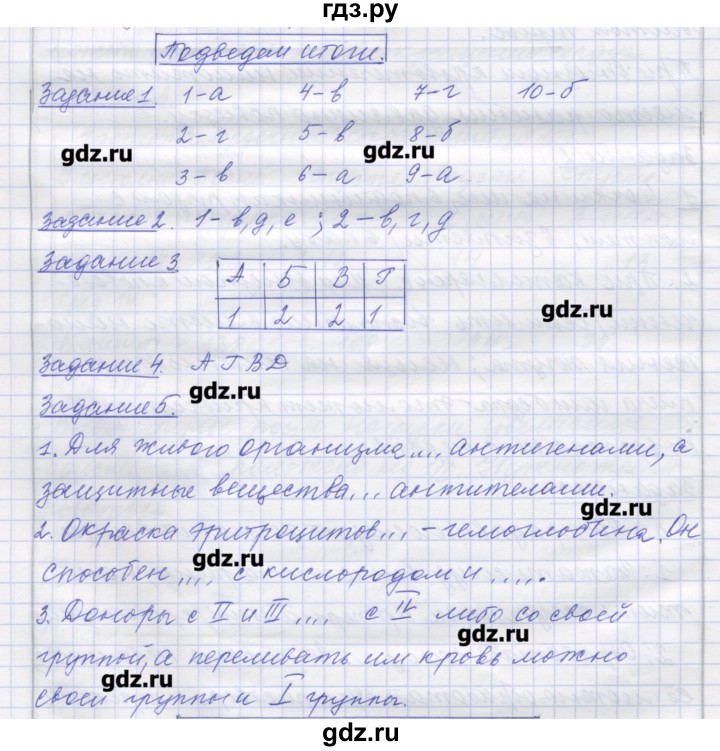 гдз.ру
Подведем итоги.
Задание 1. 1-а 4-в 7-г 10-б
2-г 5-в 8-б
gdz.ru gdz.ru
3-в 6-а 9-а
Задание 2. 1-в,д,е ; 2-в,г,д
Задание 3
А Б В Г
1 2 2 1
gdz.ru
Задание 4. А Г В D
gdz.ru
Задание 5.
1. Для живого организма.... антигенами, а
защитные вещества... антителами.
gdz.ru
2. Окраска эритроцитов... - гемоглобина. Он
gdz.ru
способен .... с кислородом и .....
3. Доноры с II и III .... с IV либо со своей
gdz.ru
группой, а переливать им кровь можно
gdz.ru
своей группы и I группы.
gdz.ru